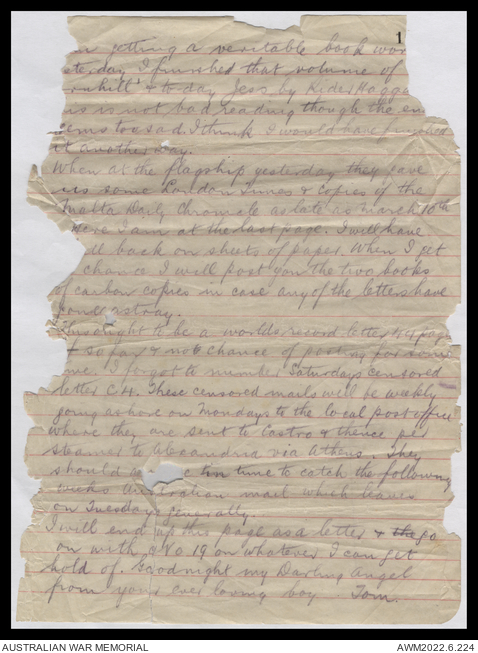 1
getting a veritable book wor
sterday I finished that volume of
ornhill" & to-day Jess by Rider Hagga
is is not bad reading though the en
eems too sad. I think I would have finished
it another way.
When at the flagship yesterday they gave
us some London Times & copies of the
Malta Daily Chronicle as late as March 10th
Here I am at the last page. I will have
all back on sheets of paper. When I get
chance I will post you the two books
of carbon copies in case any of the letters have
gone astray.
This ought to be a worlds record letter 44 page
& so far & not chance of posting for some
me. I forgot to number Saturdays censored
letter C4. These censored mails will be weekly
going ashore on Mondays to the local post office
where they are sent to Castro & thence per
steamer to Alexandria via Athens. They
should in time to catch the following
weeks Australian mail which leaves
on Tuesdays generally.
I will end up this page as a letter & the go
on with No 19 on whatever I can get
hold of. Goodnight my Darling Angel
from your ever loving boy. Tom.
AUSTRALIAN WAR MEMORIAL
AWM2022.6.224